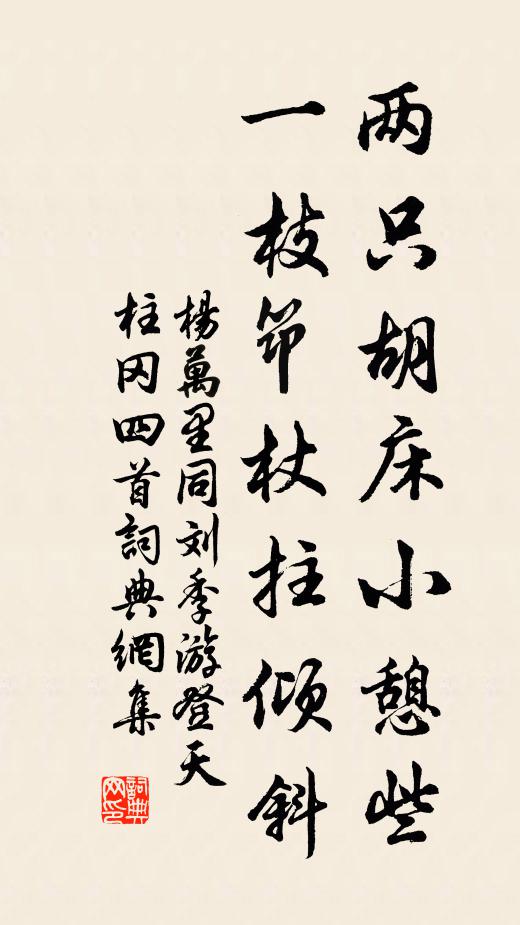 两只胡床小憩些
一枝笻杖拄倾斜
楊萬里同刘季游登天
柱冈四首詞典網集
詞典网印